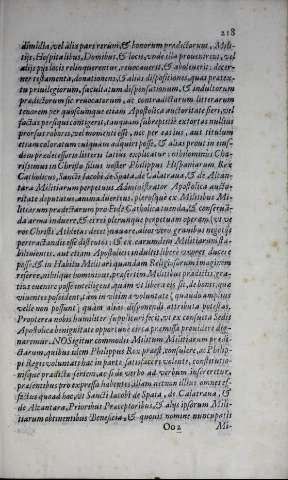 218
dimidia, vel alia pars rerum, & bonorum prædictorum, Mili-
tijs, Hospitalibus, Domibus, & locis, vnde illa prouenirent, vel
alijs pijs locis relinquerentur, reuocauerit, & aboleuerit: decer-
nens testamenta, donationes, & alias dispositiones, quas prætex-
tu priuilegiorum, facultatum dispensationum, & indultorum
prædictorum sic reuocatorum, ac contra dictarum litterarum
tenorem per quoscumque etiam Apostolica auctoritate fieri, vel
factas per ipsos contigerit, tanquam subreptitie extortas nullius
prorsus roboris, vel momenti esse, nec per ea ius, aut titulum
etiam coloratum cuiquam adquiri posse, & alias prout in eius-
dem prædecessoris litteris latius explicatur: nihilominus Cha-
rissimus in Christo filius noster Philippus Hispaniarum Rex
Catholicus, Sancti Iacobi de Spata, de Calatraua, & de Alcan-
tara Militiarum perpetuus Administrator Apostolica aucto-
ritate deputatus, animaduertens, plerosque ex Militibus Mi-
litiarum prædictarum pro Fide Catholica tuenda, &
da arma induere, & circa plerunque perpetuam operam, vt ve
ros Christi Athletas decet, nauare, alios vero grauibus negotijs
pertractandis esse distentos: & ex earundem Militiarum sta-
bilimentis, aut etiam Apostolicis indultis libere vxores ducere
posse, & in Habitu Militari quandam Religiosorum imaginem
referre, nihilque hominibus, præsertim Militibus prædictis, gra-
tius euenire posse intelligens, quàm vt libera eis sit, de bonis, quæ
viuentes possident, iam in vltima voluntate, quando amplius
velle non possunt, quàm alias disponendi attributa potestas.
Propterea nobis humiliter supplicari fecit, vt ex consueta Sedis
Apostolicæ benignitate opportune circa præmissa prouidere dig-
naremur. NOS igitur commodis Militum Militiarum prædi-
ctarum, quibus idem Philippus Rex præest, consulere, ac Philip-
pi Regis voluntati hac in parte satisfacere volentes, constitutio-
nisque prædictæ seriem, ac si de verbo ad verbum insereretur,
præsentibus pro expressa habentes, illam
quoad hoc, vt Sancti Iacobi de Spata, de Calatraua, &
de Alcantara, Prioribus Præceptoribus, & alijs ipsorum Mili-
tiarum obtinentibus Beneficia, & quouis nomine nuncupatis
Oo2 Mi-